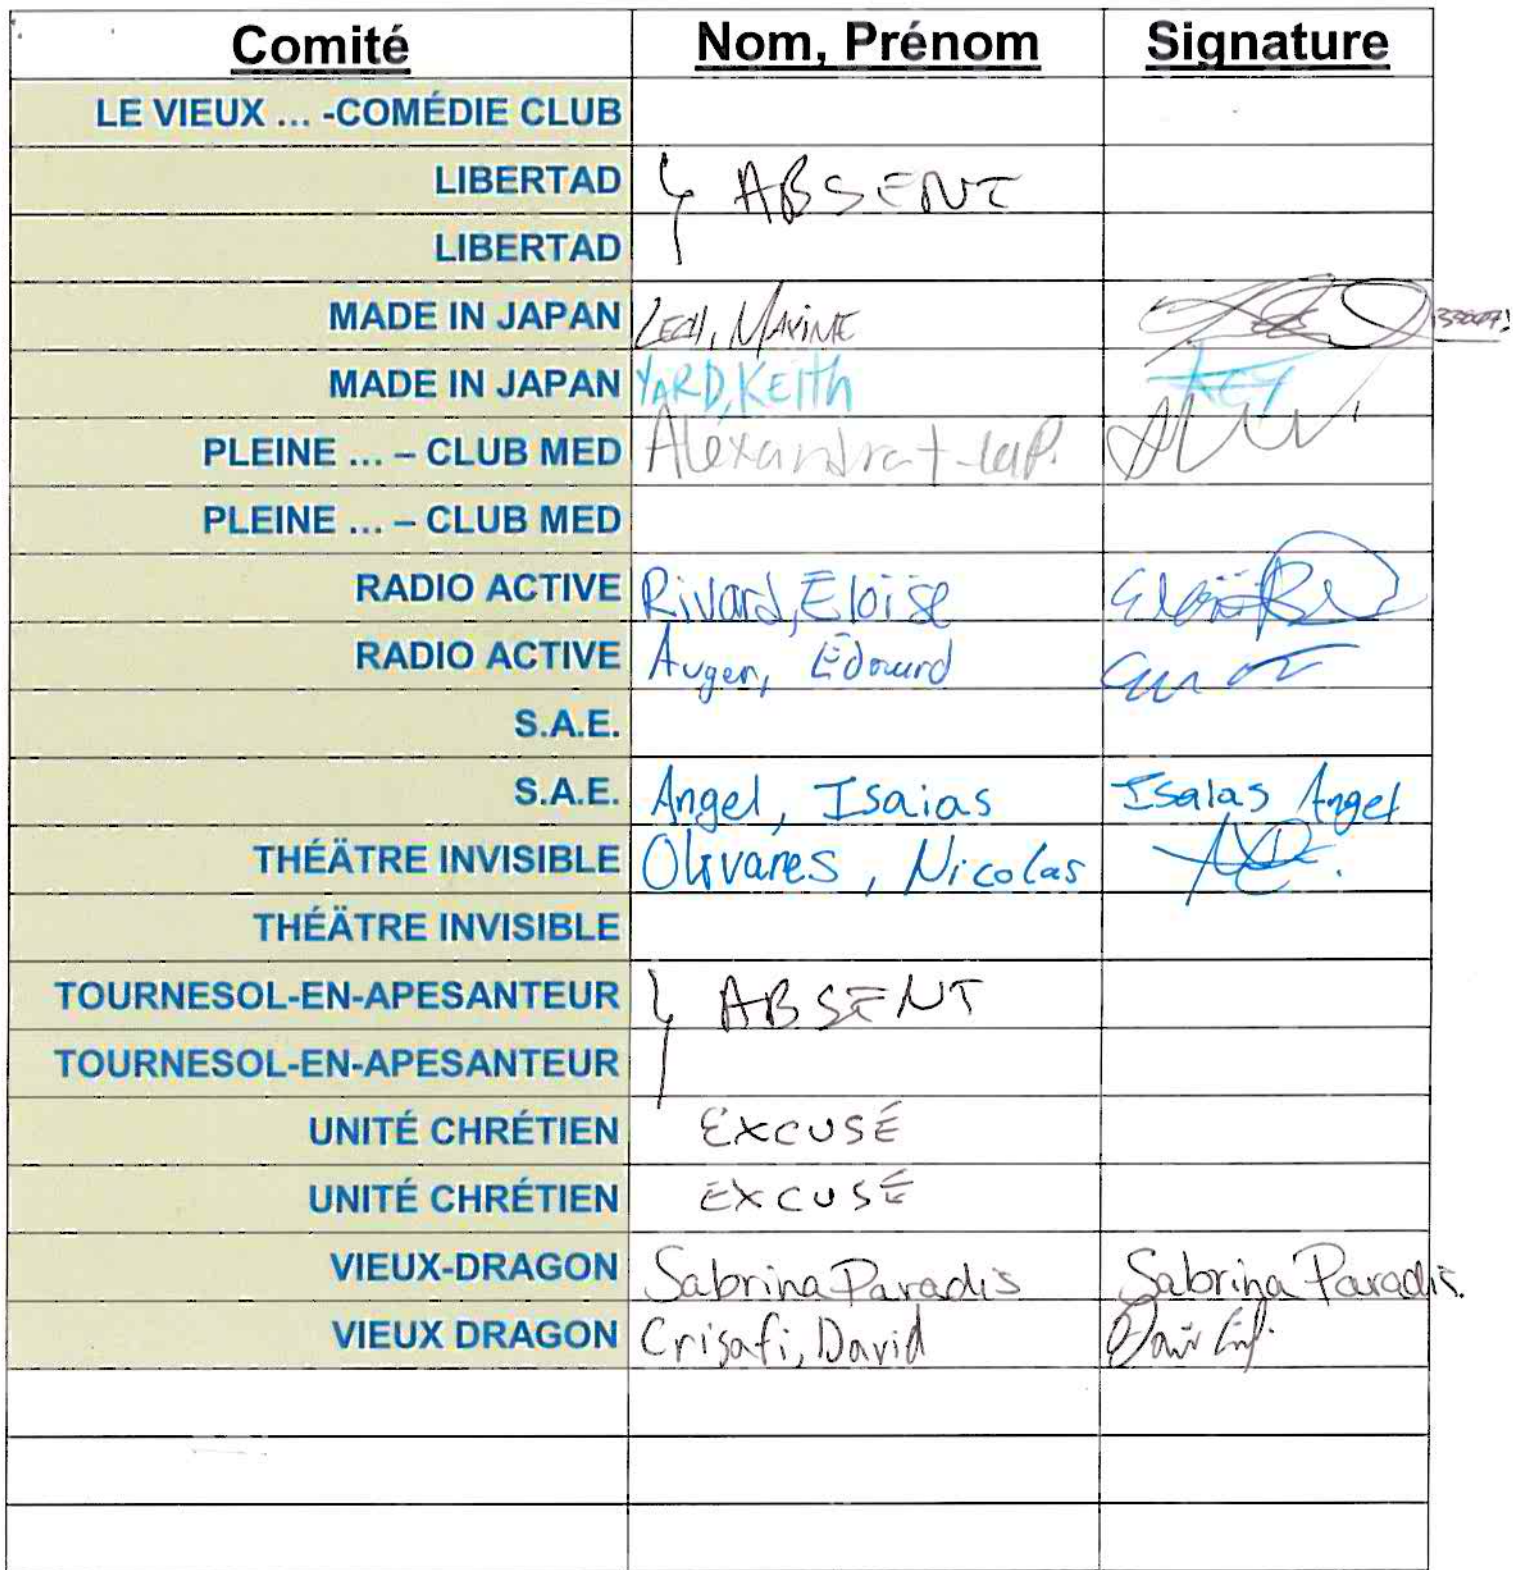 Comité Nom, Prénom Signature
LE VIEUX ... -COMÉDIE CLUB
LIBERTAD ↳ ABSENT
LIBERTAD
MADE IN JAPAN LECH, MAXIME
MADE IN JAPAN YARD, KEITH
PLEINE ... – CLUB MED Alexandra
PLEINE ... – CLUB MED
RADIO ACTIVE Rivard, Éloïse
RADIO ACTIVE Auger, Édouard
S.A.E.
S.A.E. Angel, Isaias Isaias Angel
THÉÄTRE INVISIBLE Olivares, Nicolas
THÉÄTRE INVISIBLE
TOURNESOL-EN-APESANTEUR ↳ ABSENT
TOURNESOL-EN-APESANTEUR
UNITÉ CHRÉTIEN EXCUSÉ
UNITÉ CHRÉTIEN EXCUSÉ
VIEUX-DRAGON Sabrina Paradis Sabrina Paradis.
VIEUX DRAGON Crisafi, David